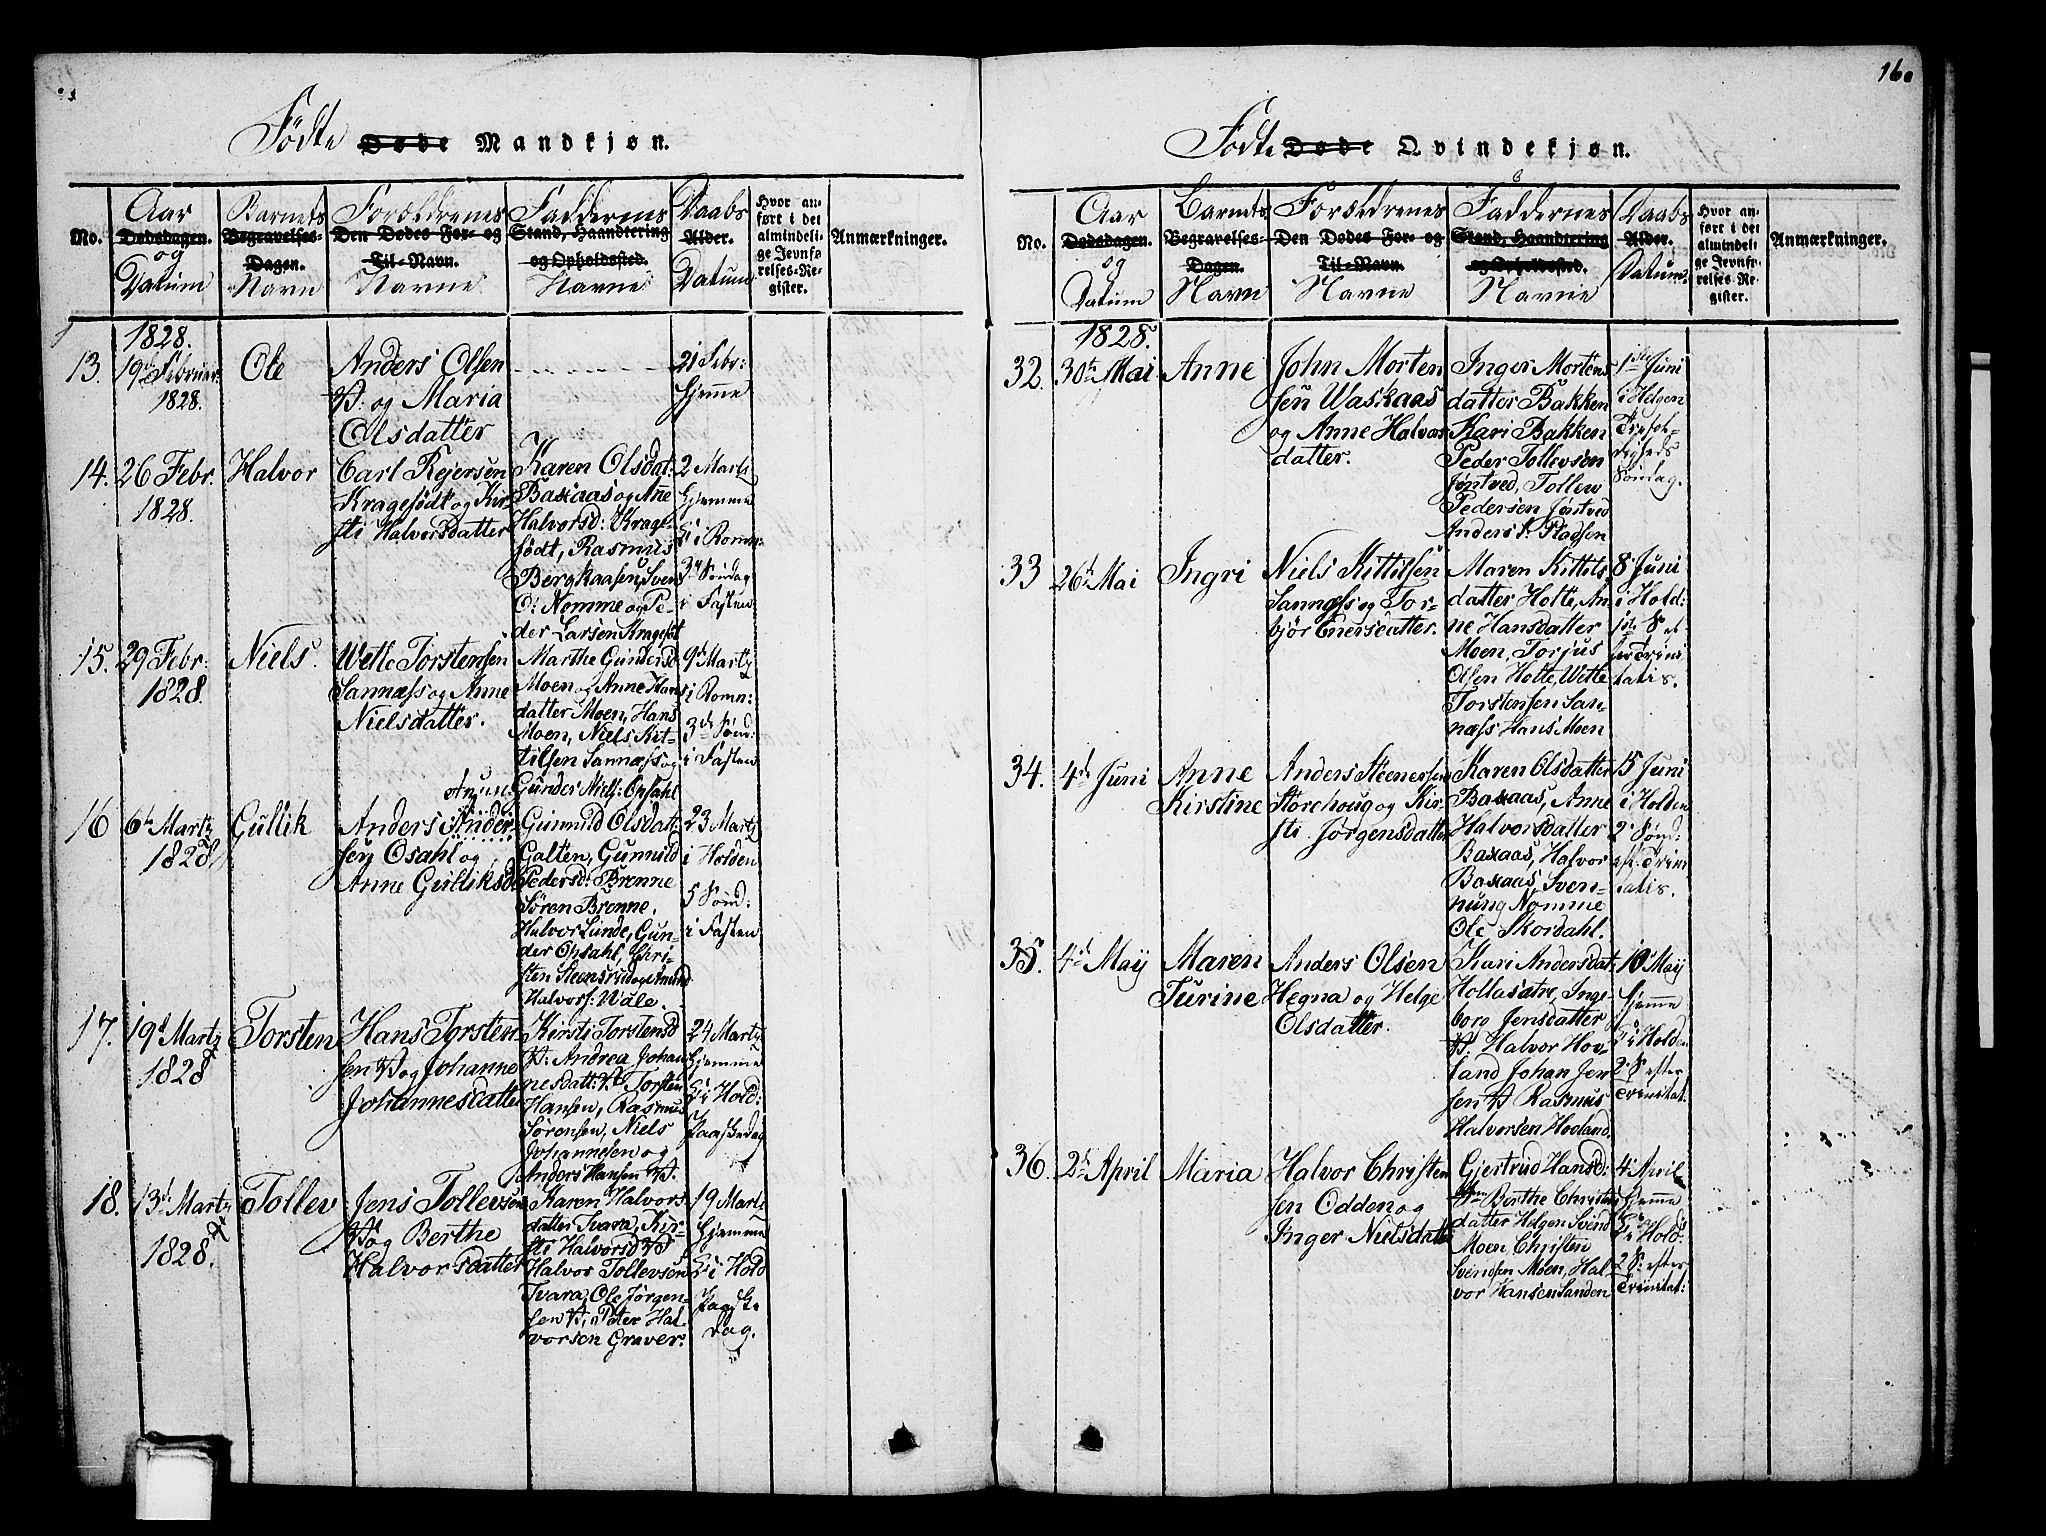 160
Födte Døde Mandkjøn.
No.
Aar
Dødsdagen.
og
Datum
Barnets
Begravelses-
Dagen.
Navn
Forældrenes
Den Dødes For- og
Til-Navn.
Navne
Faddernes
Stand, Haandtering
og Opholdssted.
Navne
Daabs
Alder.
Datum
Hvor an-
ført i det
almindeli-
ge Jevnfø-
relses-Re-
gister.
Anmærkninger.
1828.
13.
19d Februar
1828.
Ole
Anders Olsen
og Maria
Olsdatter
21 Febr:
hjemme
14.
26 Febr.
1828.
Halvor
Carl Rejersen
Kragefödt og Kir-
sti Halversdatter
Karen Olsdat:
Baxaas og Ane
Halvorsd: Krage-
födt, Rasmus
Bergkaasen, Sven
O: Nomme og Pe-
der Larsen Krageföt
2 Martz
hjemme
i Romn:
3d Söndag
i Fasten
15.
29 Febr:
1828.
Niels.
Wetle Torstensen
Sannæss og Anne
Nielsdatter.
Marthe Gundersd
Moen og Anne Hans
datter Moen, Hans
Moen, Niels Kit-
tilsen Sannæss og
Gunder Niels: Opsahl
9d Martz
i Romn:
3d Sönd:
i Fasten
16
6te Martz
1828
Gullik
Anders Ander-
sen Osahl og
Anne Gulliksd
Gunnild Olsdatt:
Galten, Gunnild
Pedersd: Brenne
Sören Brenne,
Halvor Lunde, Gun-
der Opsahl, Chri-
sten Steensrud og Amund
Halvors: Wale.
23 Martz
i Holden
5 Sönd:
i Fasten
17.
19d Martz
1828
Torsten
Hans Torsten-
sen og Johanne
Johannesdatter
Kirsti Torstensd
Andrea Johan
nesdatt: Torsten
Hansen, Rasmus
Sörensen, Niels
Johannesen og
Anders Hansen
24 Martz
hjemme
i Hold:
Paaskedag
18.
13d Martz
1828.
Tollev
Jens Tollevsen
og Berthe
Halvorsdatter
Karen Halvors
datter Tvara, Kir-
sti Halvorsd
Halvor Tollevsen
Tvara, Ole Jörgen-
sen, Peter Hal-
vorsen Graver:
19 Martz
hjemme
i Hold
Paaske
dag.
Födte Døde Qvindekjøn.
No.
Aar
Dødsdagen.
og
Datum
Barnets
Begravelses-
Dagen.
Navn
Forældrenes
Den Dødes For- og
Til-Navn.
Navne
Faddernes
Stand, Haandtering
og Opholdssted.
Navne
Daabs
Alder.
Datum.
Hvor an-
ført i det
almindeli-
ge Jevnfø-
relses-Re-
gister.
Anmærkninger.
1828.
32.
30te Mai
Anne
John Morten
sen Waskaas
og Anne Halvors
datter.
Inger Mortens
datter Bakken
Kari Bakken
Peder Tollevsen
Jöntved, Tollew
Pedersen Jöntved
Anders P. Pladsen
1ste Juni
i Hdeen
Trefol-
digheds
Söndag.
33
26d Mai
Ingri
Niels Kittilsen
Sannæss og Tor-
björ Enersdatter.
Maren Kittils
datter Holte, An
ne Hansdatter
Moen, Torjus
Olsen Holte, Wetle
Torstensen San-
næss Hans Moen
8 Juni
i Hold:
1ste S ef-
ter Trini
tatis.
34.
4de Juni
Anne
Kirstine
Anders Steenersen
Storehoug og Kir-
sti Jörgensdatter
Karen Olsdatter
Baxaas, Anne
Halvorsdatter
Baxaas, Halvor
Baxaas, Sven-
nung Nomme
Ole Skordahl.
15 Juni
i Holden
2d Sönd:
eft. Trini
tatis.
35.
4de Maij
Maren
Turine
Anders Olsen
Hegna og Helge
Olsdatter.
Kari Andersdat:
Hollasætre, Inge-
borg Jensdatter
Halvor Hov-
land Johan Jen
sen Rasmus
Halvorsen Hovland.
10 Maij
hjemme
i Holden
2 S efter
Trinitat:
36.
2d April
Maria
Halvor Christen
sen Odden og
Inger Nielsdatter
Gjertrud Hansd:
Berthe Christens
datter Helgen Svend
Moen, Christen
Svendsen Moen, Hal-
vor Hansen Sanden
4 April
hjemme
i Hold:
2 S: efter
Trinitat: